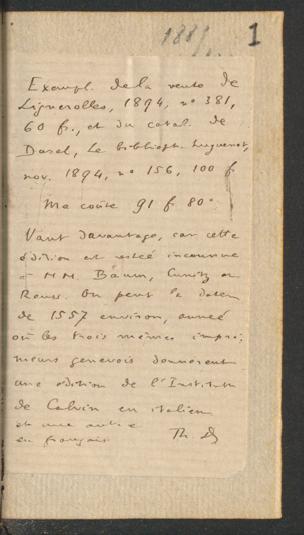 188
1
Exempl. de la vente de
Lignerolles, 1894, nº 381,
60 fr., et du catal. de
Durel, Le biblioph. huguenot,
nov. 1894, nº 156, 100 f
Me coûte 91 f 80 c
Vaut davantage, car cette
édition est restée inconnue
à MM. Baum, Cunitz et
Reuss. On peut la dater
de 1557 environ, année
où les trois mêmes impri;
meurs genevois donnèrent
une édition de l'Institution
de Calvin en italien
et une autre
en français
Th. D